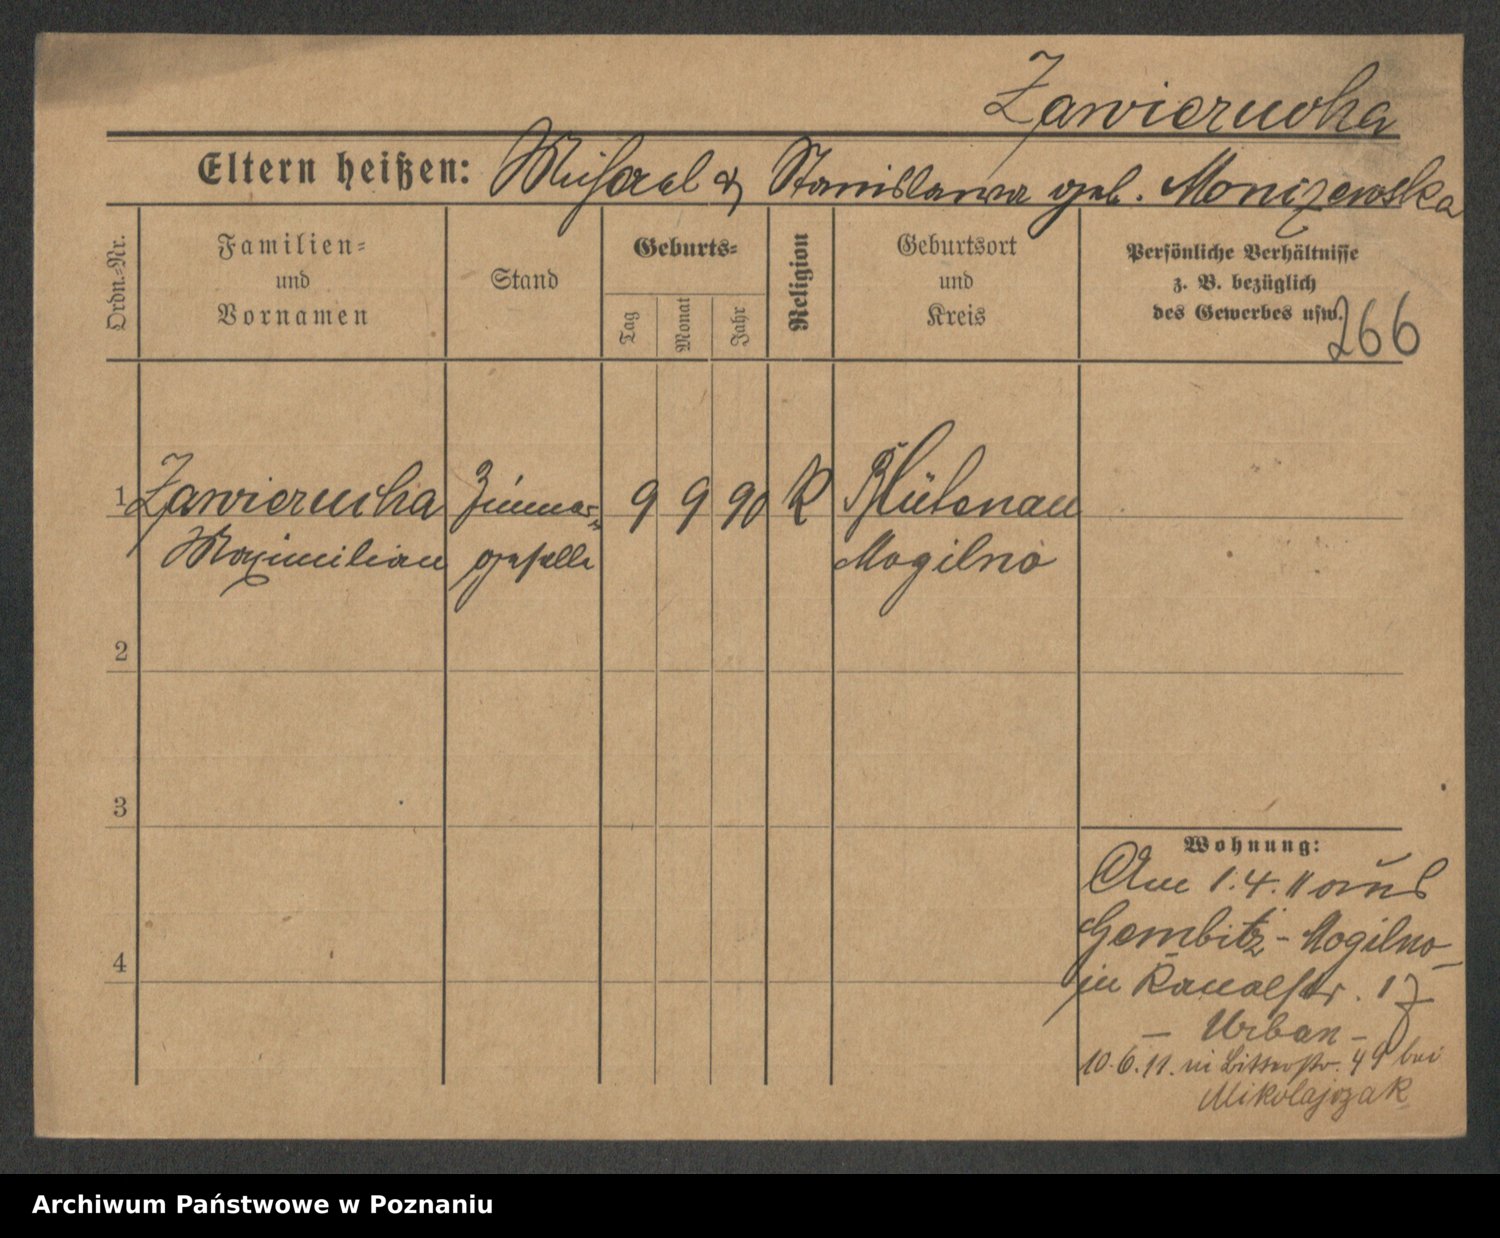 Zawierucha
Eltern heißen: Michael & Stanislawa geb. Monizewska
Ordn.-Nr.
Familien-
und
Vornamen
Stand
Geburts-
Tag
Monat
Jahr
Religion
Geburtsort
und
Kreis
Persönliche Verhältnisse
z. B. bezüglich
des Gewerbes usw.
266
1 Zawierucha Zimmer- 9 9 90 K Blütenau
Maximilian geselle Mogilno
2
3
4
Wohnung:
Am 1.4.11 aus
Gembitz - Mogilno
in Kanalstr. 17
- Urban -
10.6.11. in 49 bei
Mikolajczak
Archiwum Państwowe w Poznaniu